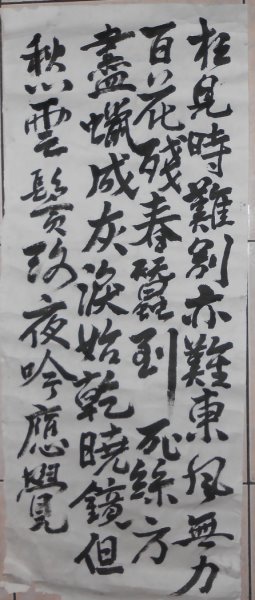 相見時難別亦難東風無力
百花殘春蠶到死絲方
盡蠟成灰淚始乾曉鏡但
愁雲鬢改夜吟應覺